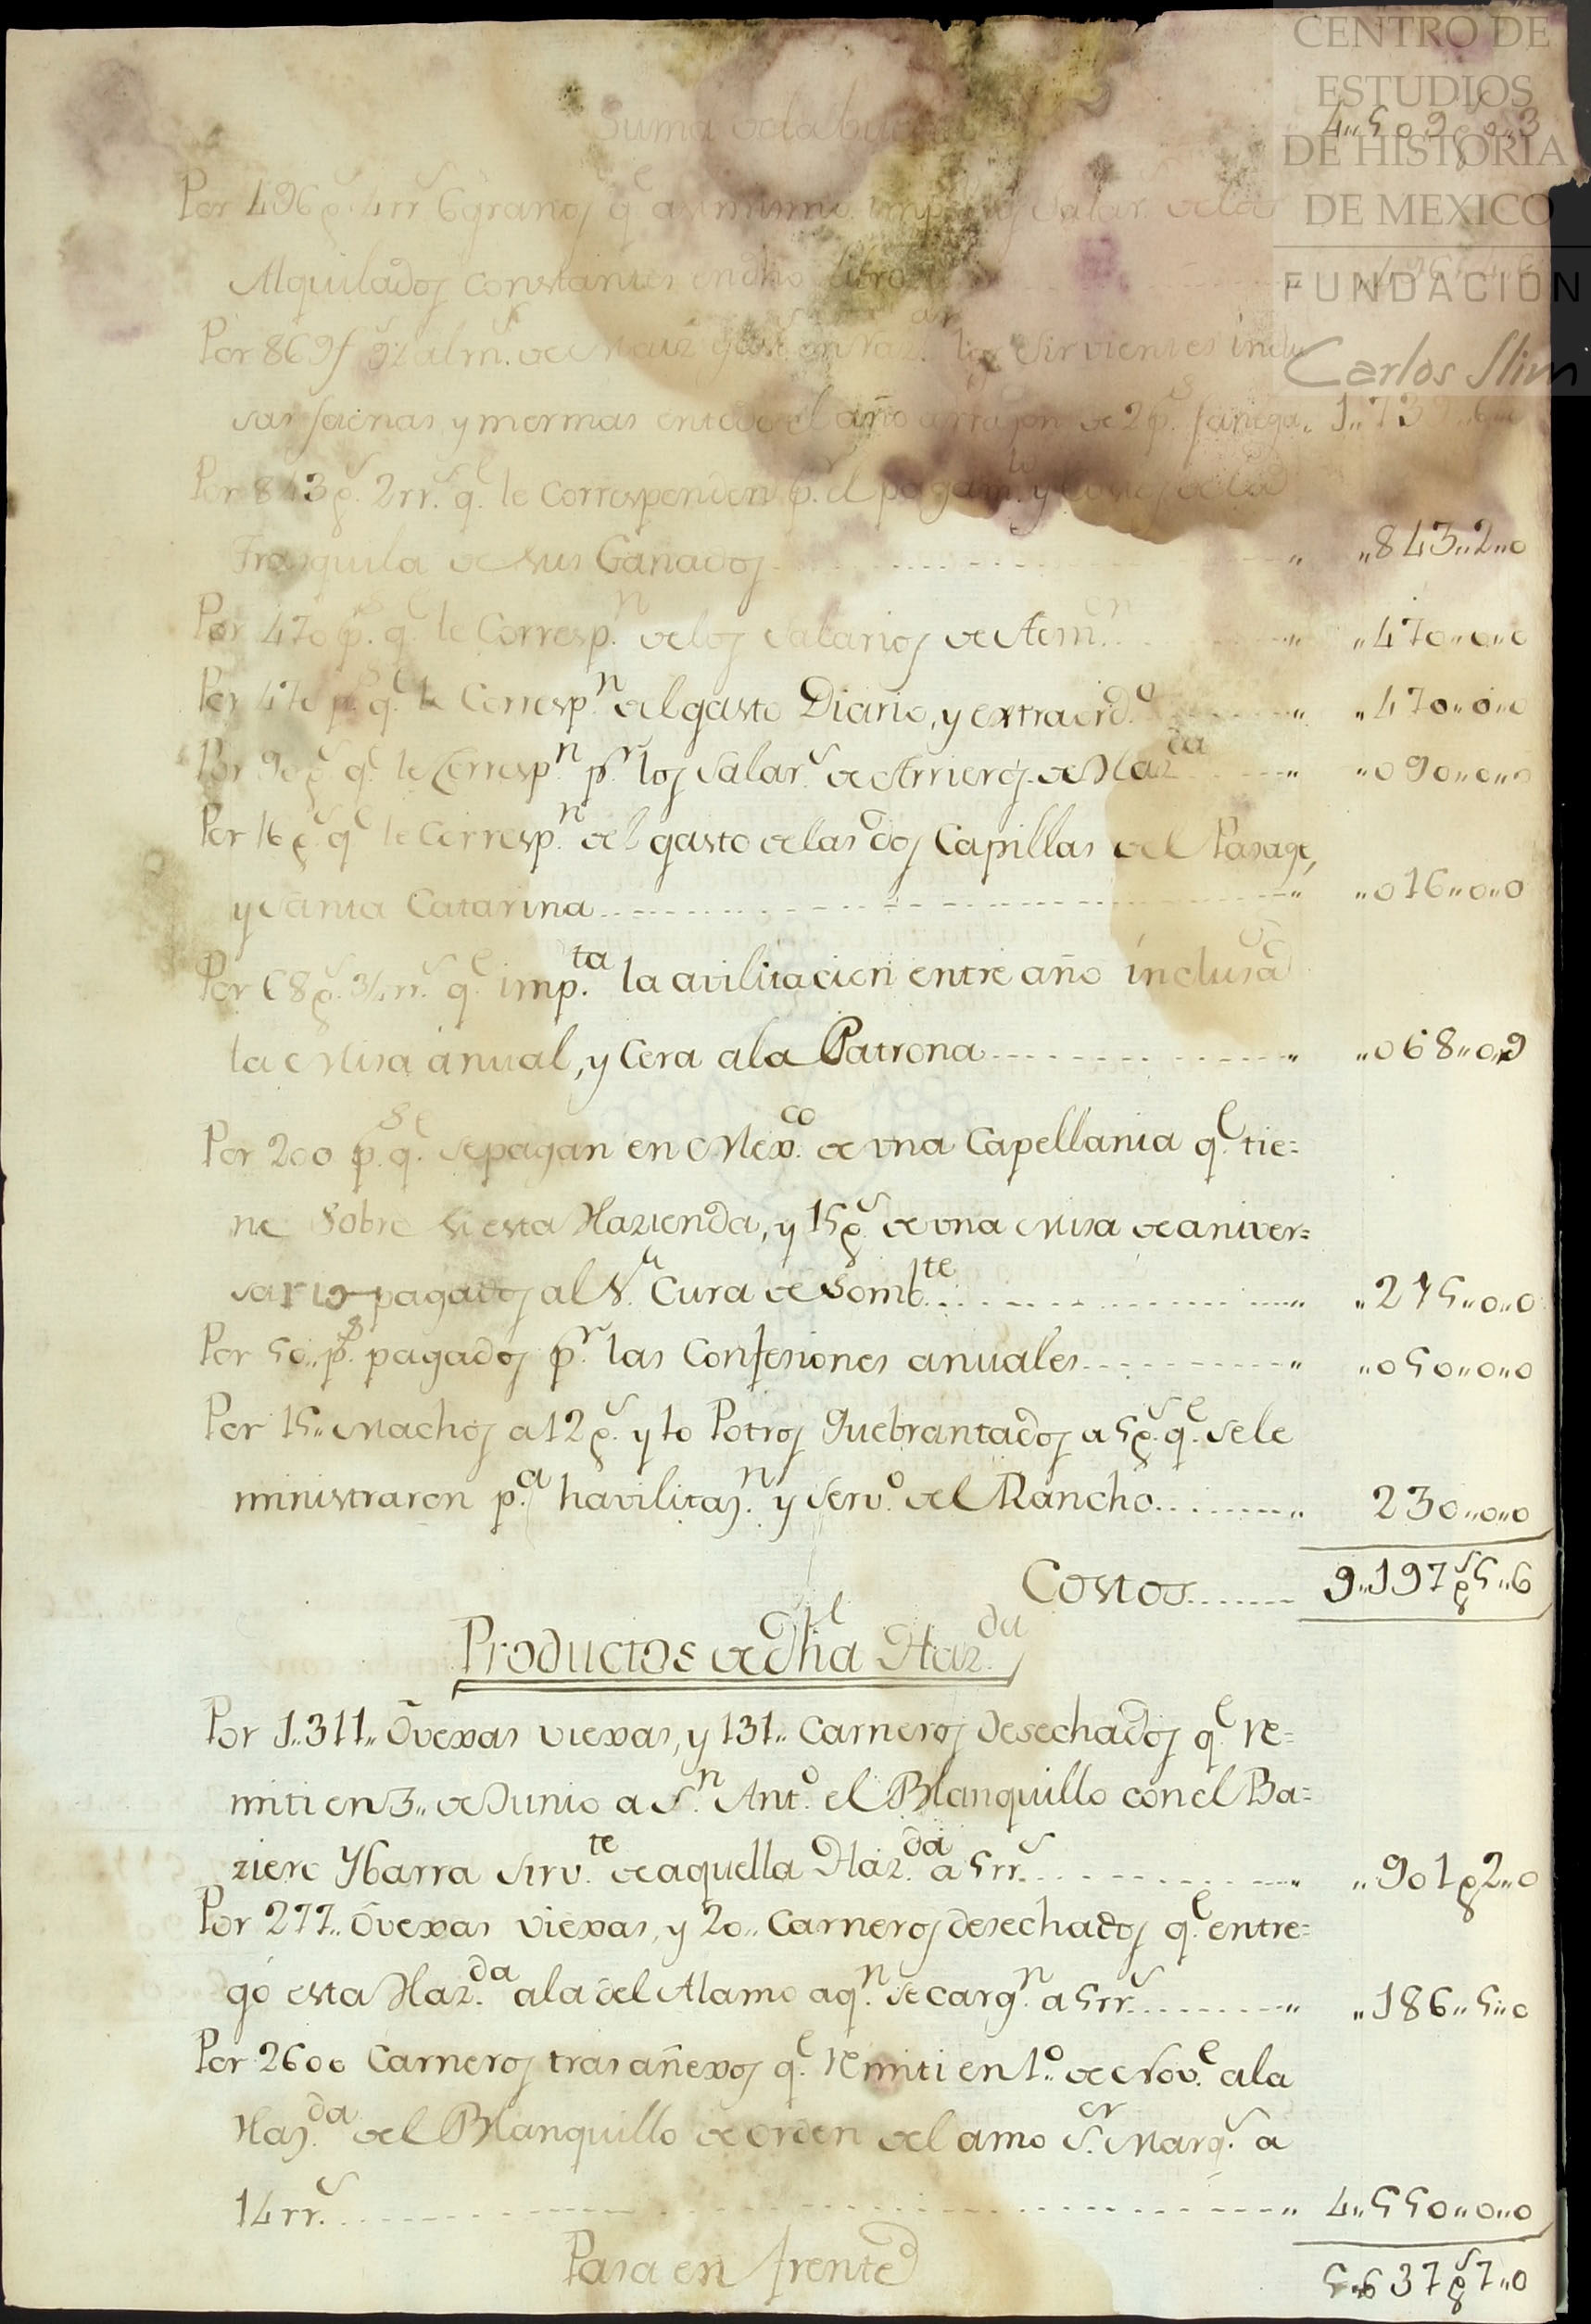 CENTRO DE
ESTUDIOS
DE HISTORIA
DE MEXICO
FUNDACION
Carlos Slim
Suma dela bu 4,,509 3
Por 496 p.s 4 rr.s 6 granos q.e asi mismo imp los Salar.s delos
Alquilados Constantes en dho libro 496,,4,,6
Por 869 f.s 9½ alm.s de Maiz en los Sirvientes inclu
sas faenas y mermas en todo el año a rrazon de 2 p.s fanega,, 1,,739,,6,,
Por 843 p.s 2 rr.s q.e le Corresponden p.r el pagam.to y Costos dela
Trasquila de sus Ganados ,, ,,843,,2,,0
Por 470 p.s q.e le Corresp.n delos Salarios de Adm.on ,, ,,470,,0,,0
Por 470 p.s q.e le Corresp.n del gasto Diario, y extraord.o ,, ,,470,,0,,0
Por 90 p.s q.e le Corresp.n p.r los Salar.s de Arrieros de Haz.da ,, ,,090,,0,,0
Por 16 p.s q.e le Corresp.n del gasto delas dos Capillas del Pasage,
y Santa Catarina ,, ,,016,,0,,0
Por 68 p.s ¾ rr.s q.e imp.ta la avilitacion entre año inclusa
la Misa anual, y Cera ala Patrona ,, ,,068,,0,,9
Por 200 p.s q.e se pagan en Mex.co de vna Capellania q.e tie=
ne sobre si esta Hazienda, y 15 p.s de vna Misa de aniver=
sario pagados al S.r Cura de Somb.te ,, ,,215,,0,,0
Por 50,, p.s pagados p.r las Confesiones anuales ,, ,,050,,0,,0
Por 15,, Machos a 12 p.s y 10 Potros Quebrantados a 5 p.s q.e se le
ministraron p.a havilitaz.n y Serv.o del Rancho ,, 230,,0,,0
Costos 9,,197 p.s 5,,6
Productos de dha Haz.da
Por 1,,311,, Ovexas viexas, y 131,, Carneros desechados q.e re=
miti en 3,, de Junio a S.n Ant.o el Blanquillo con el Ba=
ziero Ybarra Sirv.te de aquella Haz.da a 5 rr.s ,, ,,901 p 2,,0
Por 277,, Ovexas viexas, y 20,, Carneros desechados q.e entre=
gó esta Haz.da ala del Alamo aq.n se carg.n a 5 rr.s ,, ,,186,,5,,0
Por 2600 Carneros trasañexos q.e remiti en 1.o de Nov.e ala
Haz.da del Blanquillo de orden del amo S.or Marq.s a
14 rr.s ,, 4,,550,,0,,0
Pasa en frente 5,,637 p.s 7,,0